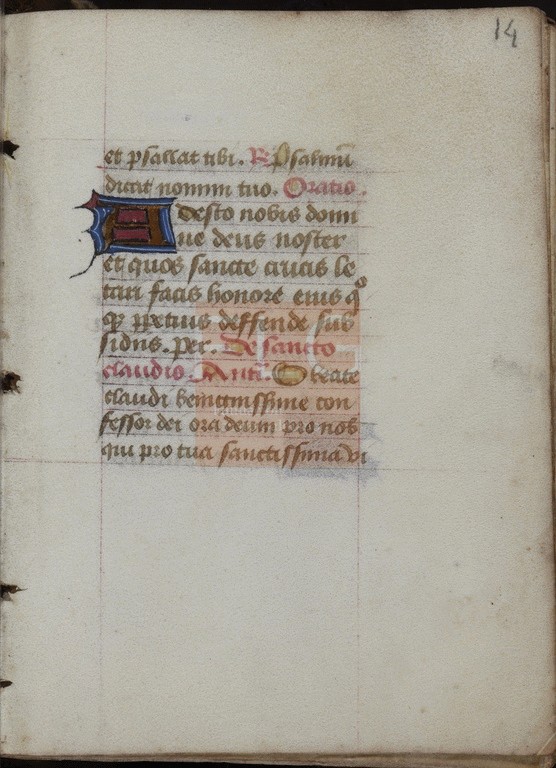 14
et psallat tibi. R Psalmū
dicat nomini tuo. Oratio.
Adesto nobis domi
ne deus noster
et quos sancte crucis le
tari facis honore eius qͦ
qꝫ ꝑpetuis deffende sub
sidiis. per. De sancto
claudio. Antᷓ. O beate
claudi benignissime con
fessor dei ora deum pro nobˢ
qui pro tua sanctissima vi